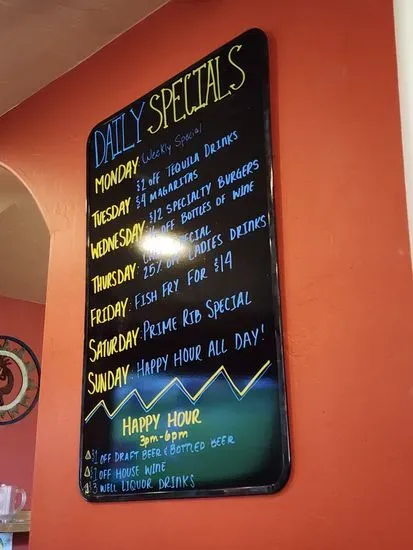 DAILY SPECIALS
MONDAY: Weekly Special
$2 OFF TEQUILA DRINKS
TUESDAY $4 MAGARITAS
$12 SPECIALTY BURGERS
WEDNESDAY: OFF BOTTLES OF WINE
SPECIAL
THURSDAY: 25% OFF LADIES DRINKS
FRIDAY: FISH FRY FOR $14
SATURDAY: PRIME RIB SPECIAL
SUNDAY: HAPPY HOUR ALL DAY!
HAPPY HOUR
3pm-6pm
$1 OFF DRAFT BEER & BOTTLED BEER
$1 OFF HOUSE WINE
$3 WELL LIQUOR DRINKS